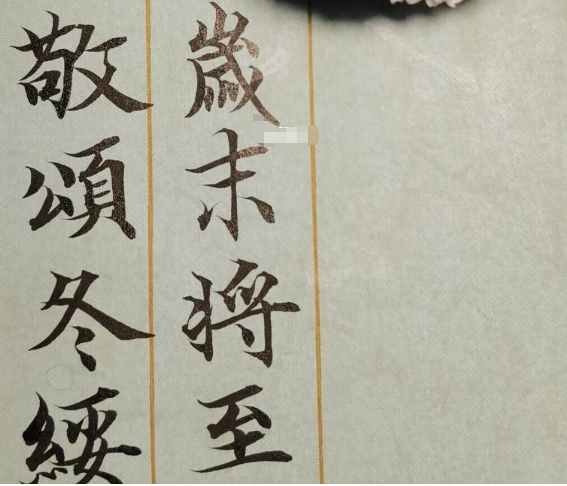 歲末将至
敬頌冬綏